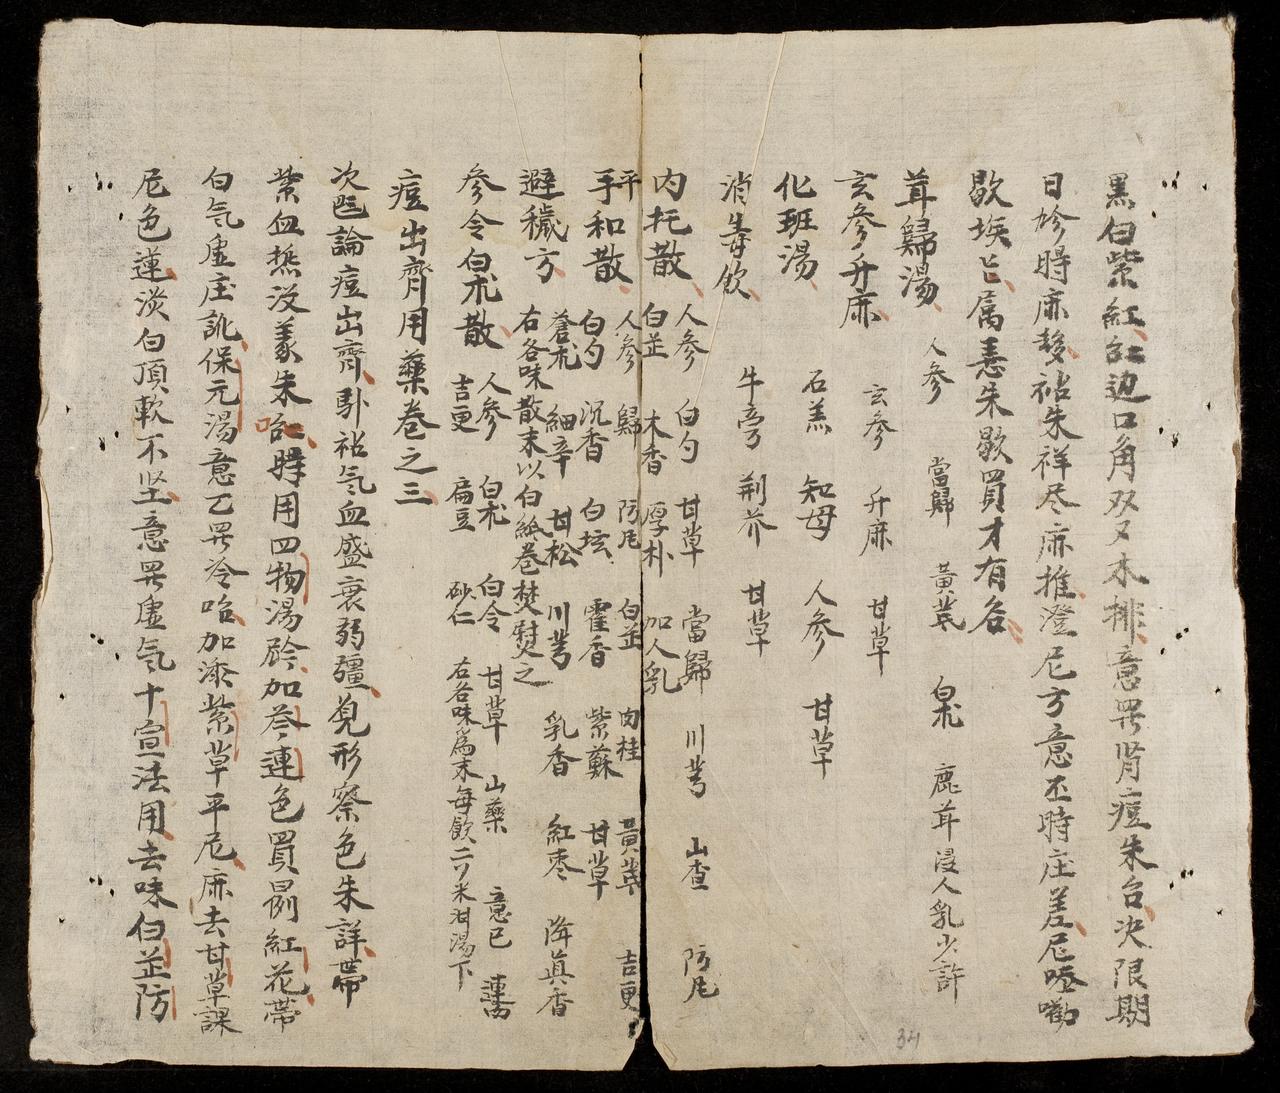 黑白紫紅紅边口角双又木排意畧肾痘朱台决限期
日㾕時麻🈳祜朱祥尽麻推澄尼方意丕時庄差尼𠸗嘲
歇埃㐌属悪朱歇買才有谷
茸歸湯 人參 當歸 黃芪 白朮 鹿茸浸人乳少許
玄參升麻 玄參 升麻 甘草
化班湯 石羔 知母 人參 甘草
消毒飲 牛旁 荆芥 甘草
內托散 人參 白勺 甘草 當歸 川芎 山查 防尾
白芷 木香 厚朴 加人乳
平手和散 人參 歸 防尾 白芷 肉桂 黃芪 吉更
白勺 沉香 白坛 霍香 紫蘇 甘草
避穢方 蒼朮 細辛 甘松 川芎 乳香 紅枣 降眞香
右各味散末以白紙卷焚熨之
參令白朮散 人參 白朮 白令 甘草 山藥 意已 連肉
吉更 扁豆 砂仁 右各味爲末每飲二 米泔湯下
痘出齊用藥卷之三
次㐌論痘出齊 祜气血盛衰弱彊覓形察色朱詳帶
紫血𤍠沒羕朱 時用四物湯 加芩連色買𠔭紅花帶
白气虛庄訛保元湯意乙畧冷哈加添紫草平尼麻去甘草課
尼色蓮淡白頂軟不坚意畧虛气十宣法用去味白芷防